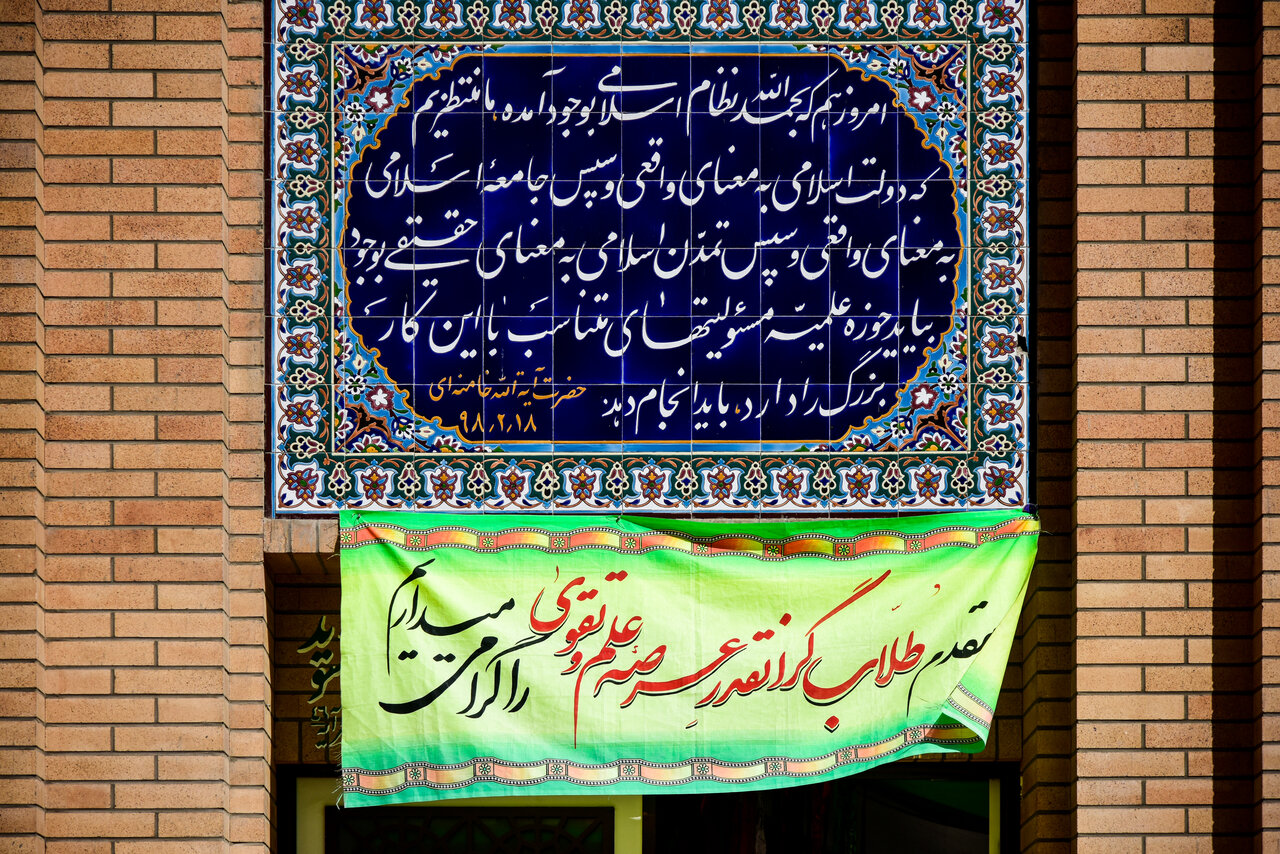 امروز هم که بحمدالله نظام اسلامی بوجود آمده، ما منتظریم
که دولت اسلامی به معنای واقعی و سپس جامعهٔ اسلامی
به معنای واقعی و سپس تمدّن اسلامی به معنای حقیقی بوجود
بیاید حوزه علمیّه مسئولیتهای متناسب با این کار
بزرگ را دارد، باید انجام دهد.
حضرت آیة الله خامنه ای
۹۸٫۲٫۱۸
مقدم طلّاب گرانقدر عرصهٔ علم و تقوی
را گرامی میداریم